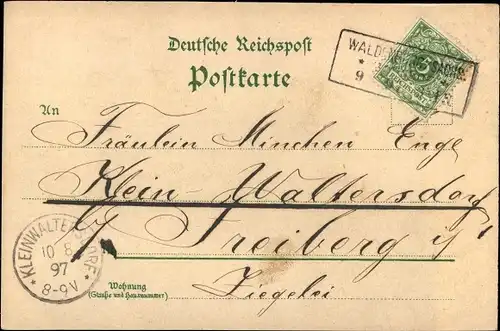 Deutsche Reichspost
Postkarte
WALDENBURG SACHS.
* 9
An
Fräulein Minchen Engl
Klein-Waltersdorf
b/ Freiberg i/s
Ziegelei
KLEINWALTERSDORF
10 8
97
8-9V
Wohnung
(Straße und Hausnummer)